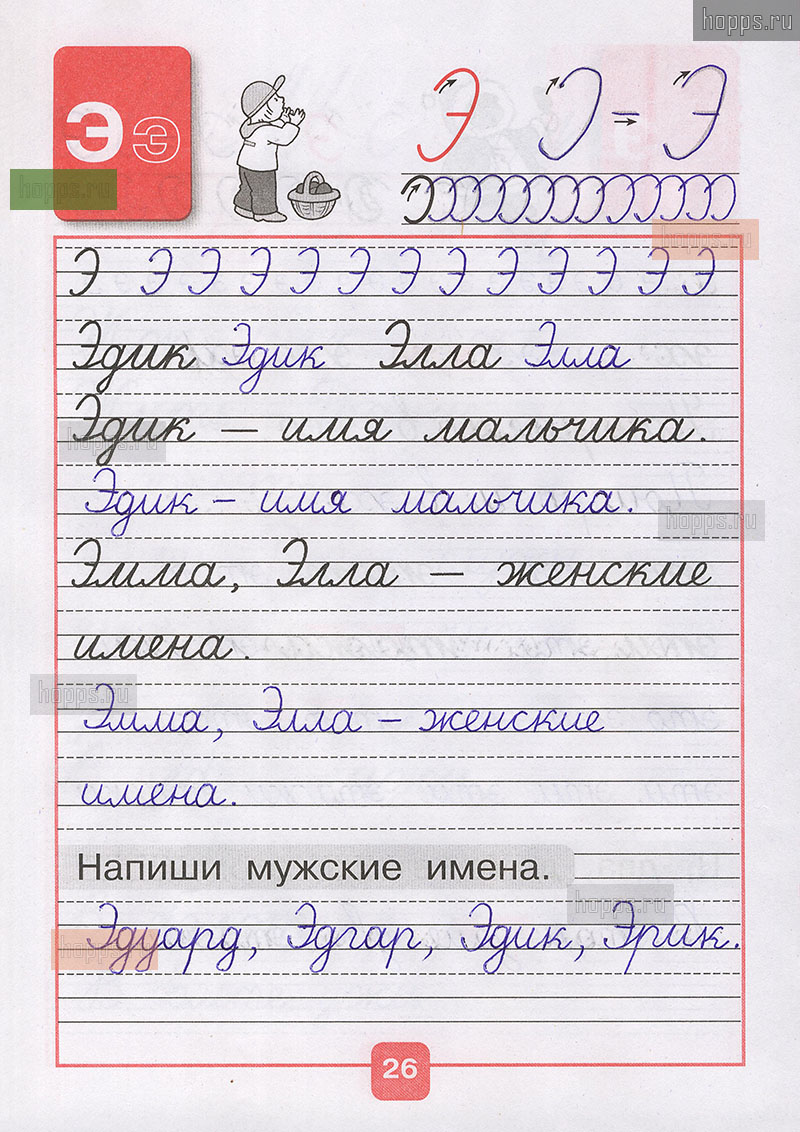 hopps.ru
Э э
Э Э = Э
hopps.ru
hopps.ru
Э Э Э Э Э Э Э Э Э Э Э Э
Эдик Эдик Элла Элла
Эдик – имя мальчика.
hopps.ru
Эдик – имя мальчика.
hopps.ru
Эмма, Элла – женские
имена.
hopps.ru
Эмма, Элла – женские
имена.
Напиши мужские имена.
hopps.ru
Эдуард, Эдгар, Эдик, Эрик.
hopps.ru
26